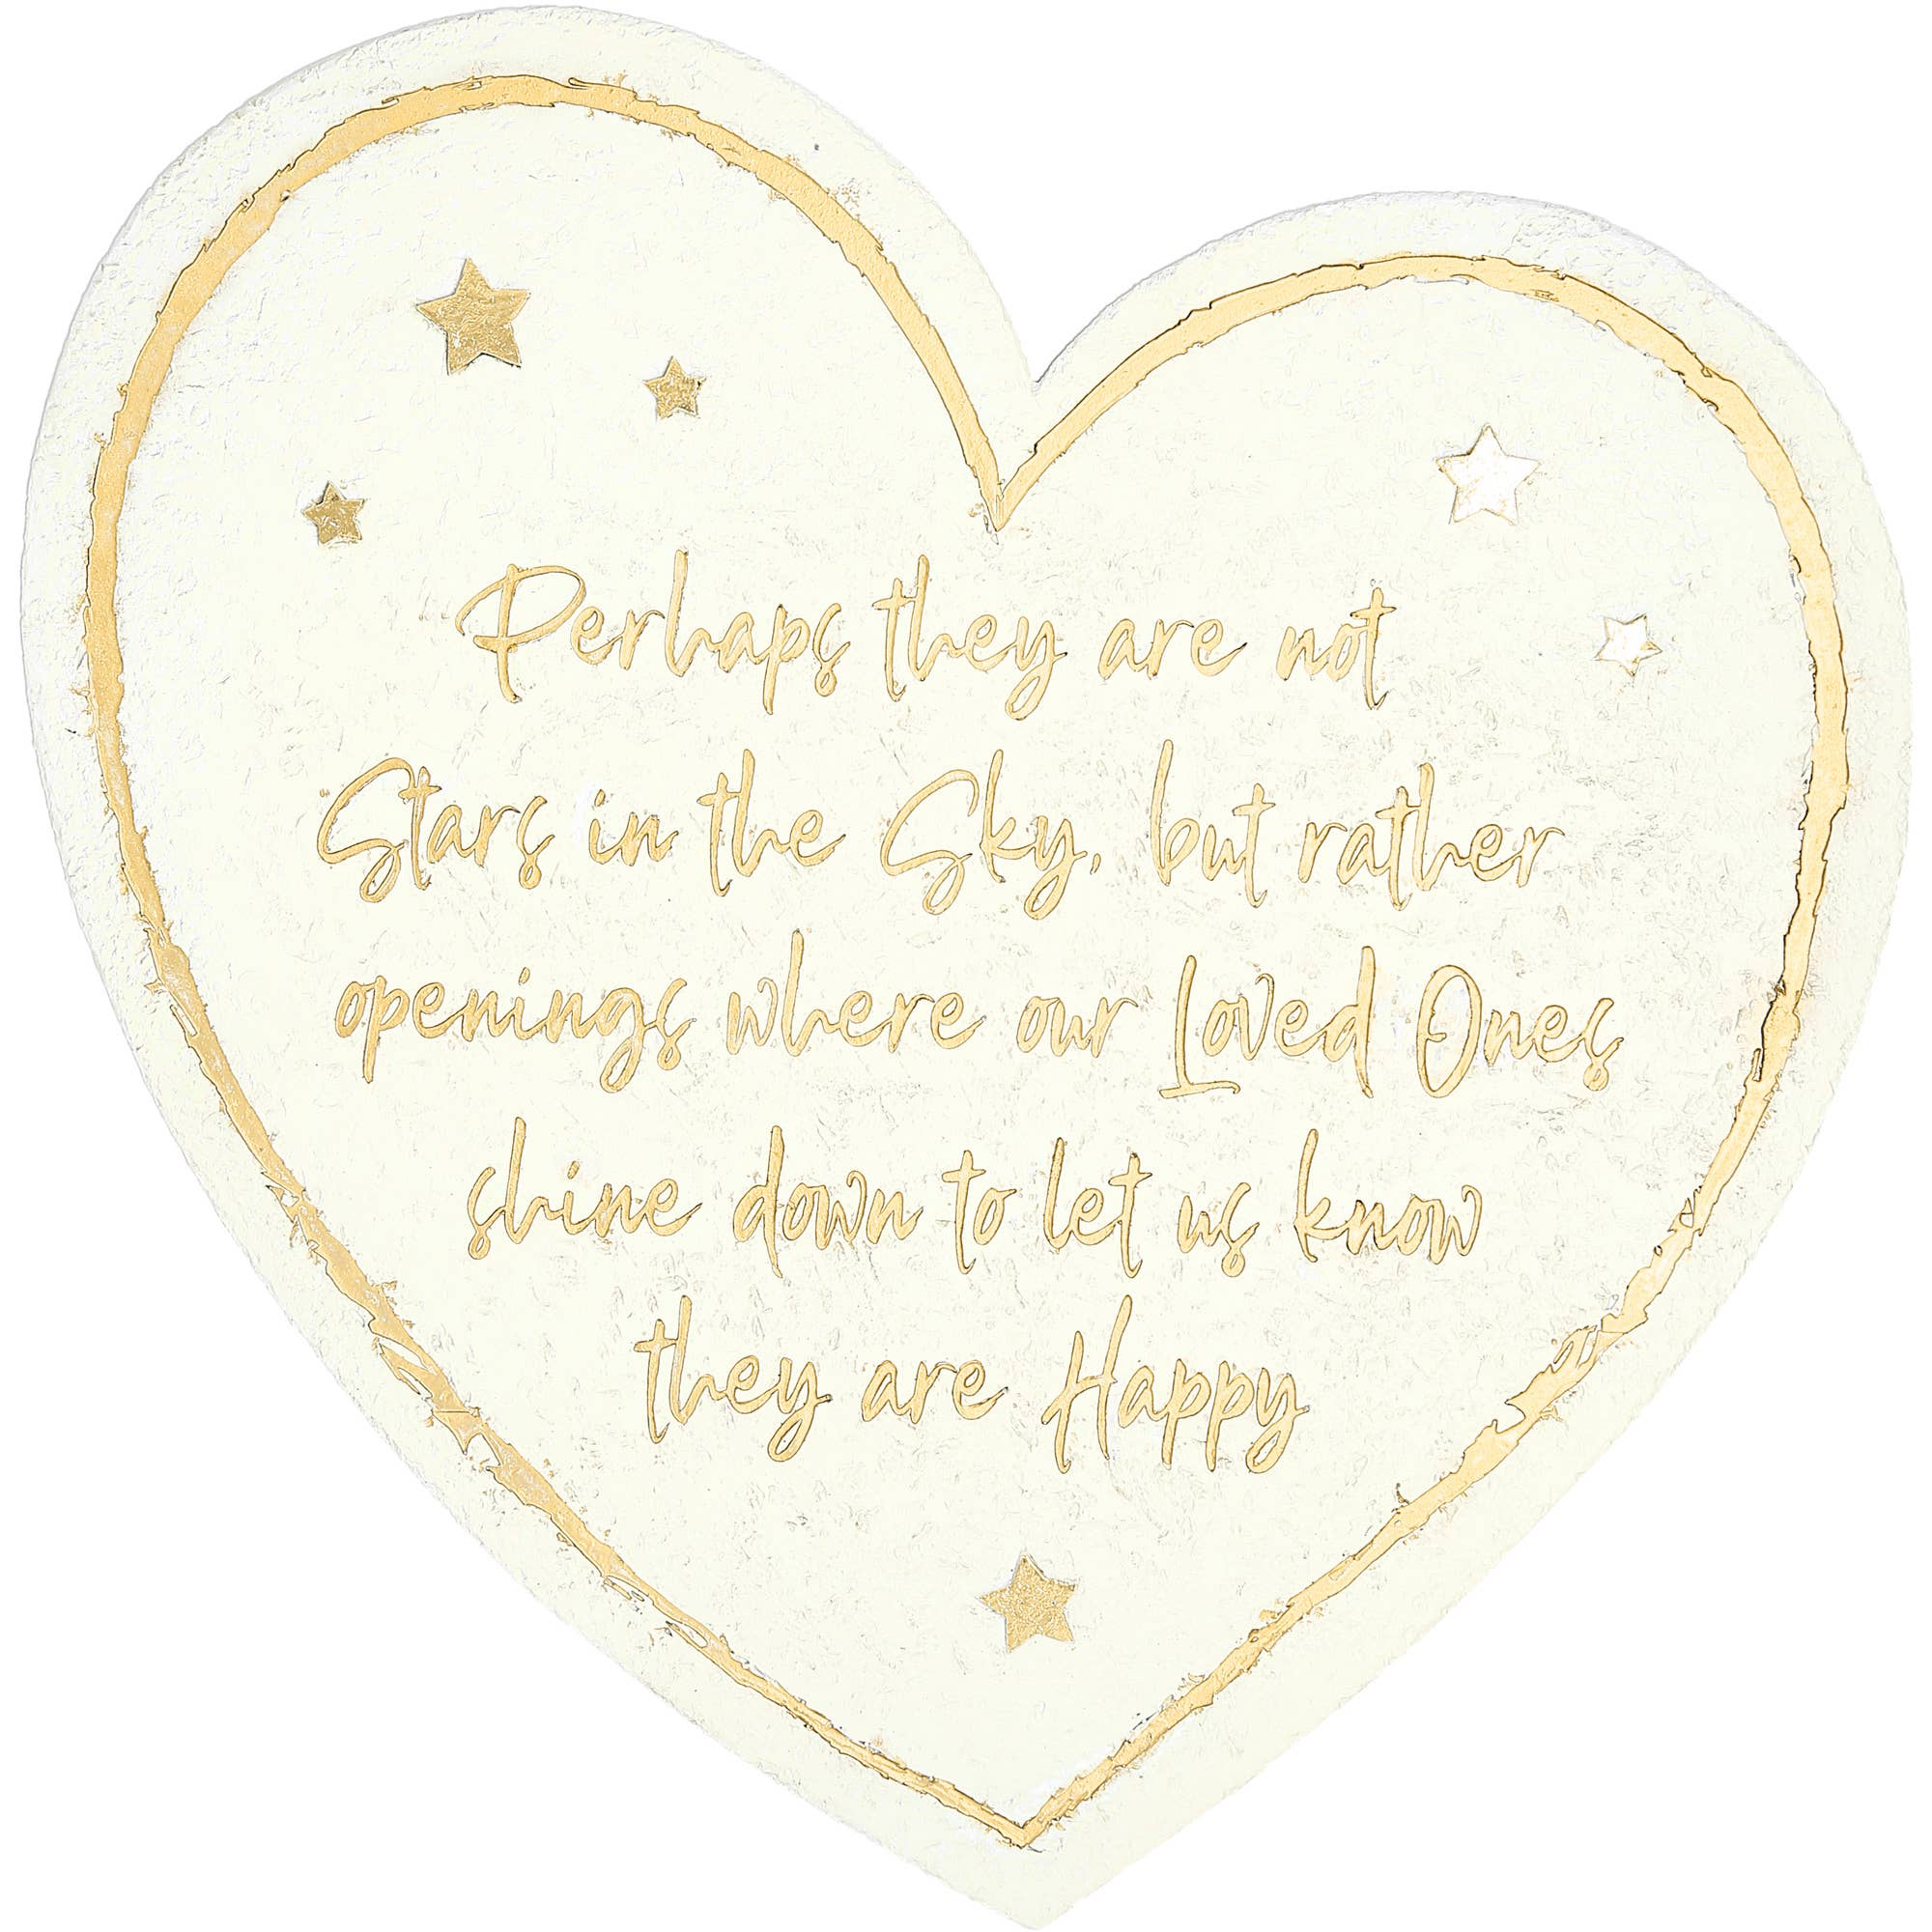 Perhaps they are not
Stars in the Sky, but rather
openings where our Loved Ones
shine down to let us know
they are Happy